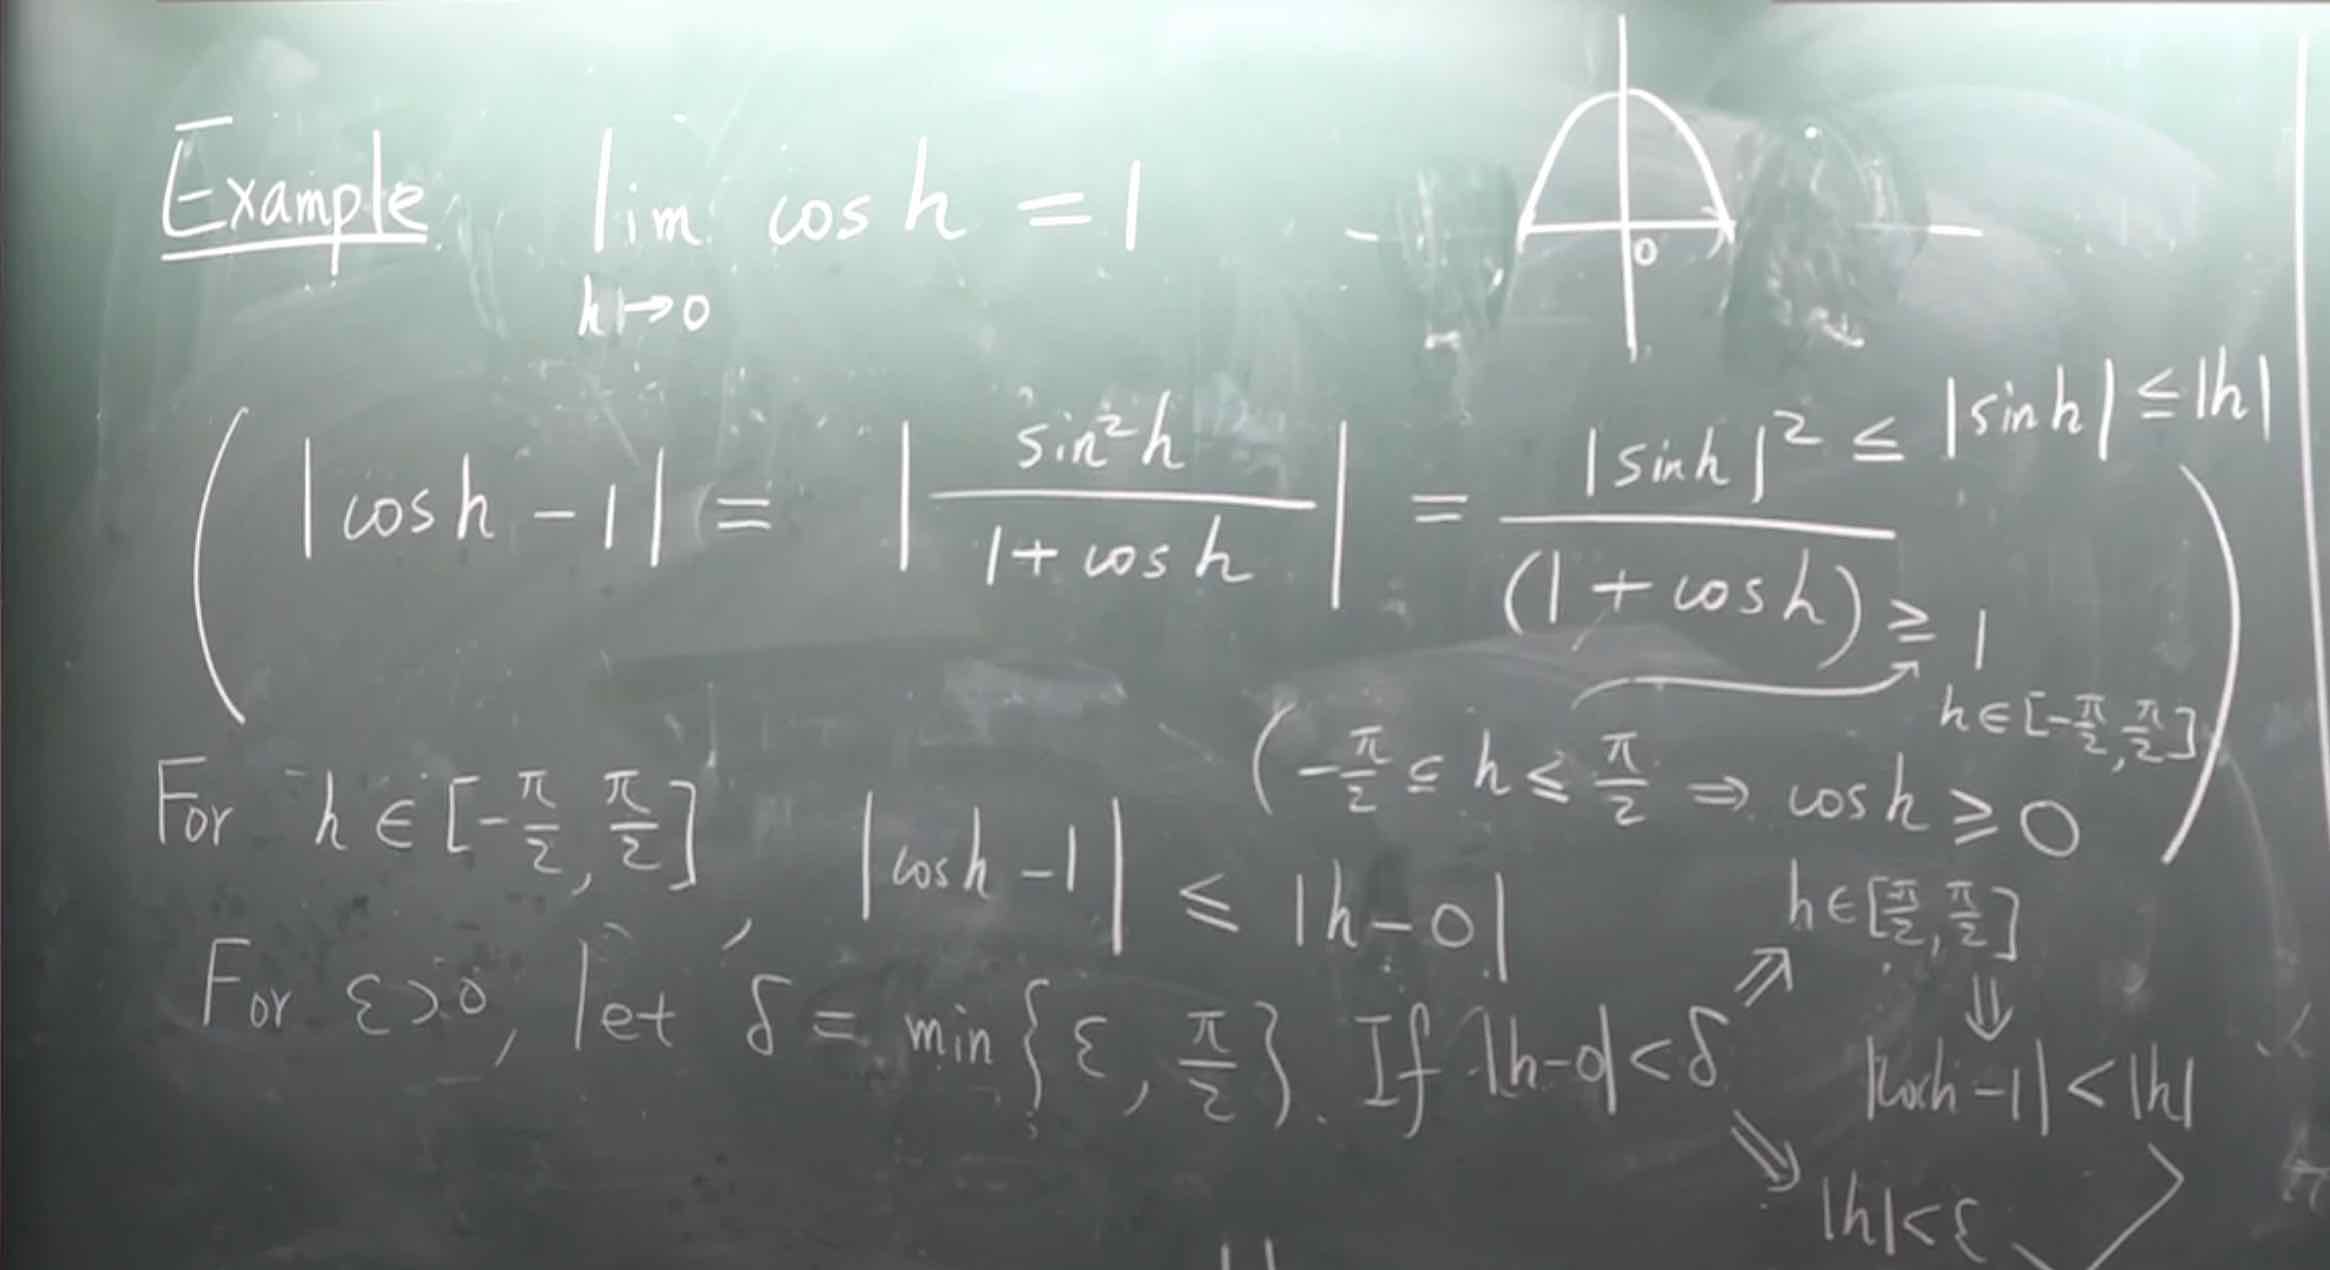 Example lim cos h = 1
h ↦ 0
0
( |cos h - 1| = | sin²h / 1 + cos h | = |sin h|² / (1 + cos h) ≤ |sin h| ≤ |h|
≥ 1
h ∈ [-π/2, π/2]
(-π/2 ≤ h ≤ π/2 ⇒ cos h ≥ 0 )
For h ∈ [-π/2, π/2], |cos h - 1| ≤ |h - 0|
For ε > 0, let δ = min{ε, π/2}. If |h - 0| < δ
⇗ h ∈ [-π/2, π/2]
⇓
|cos h - 1| < |h|
⇘ |h| < ε